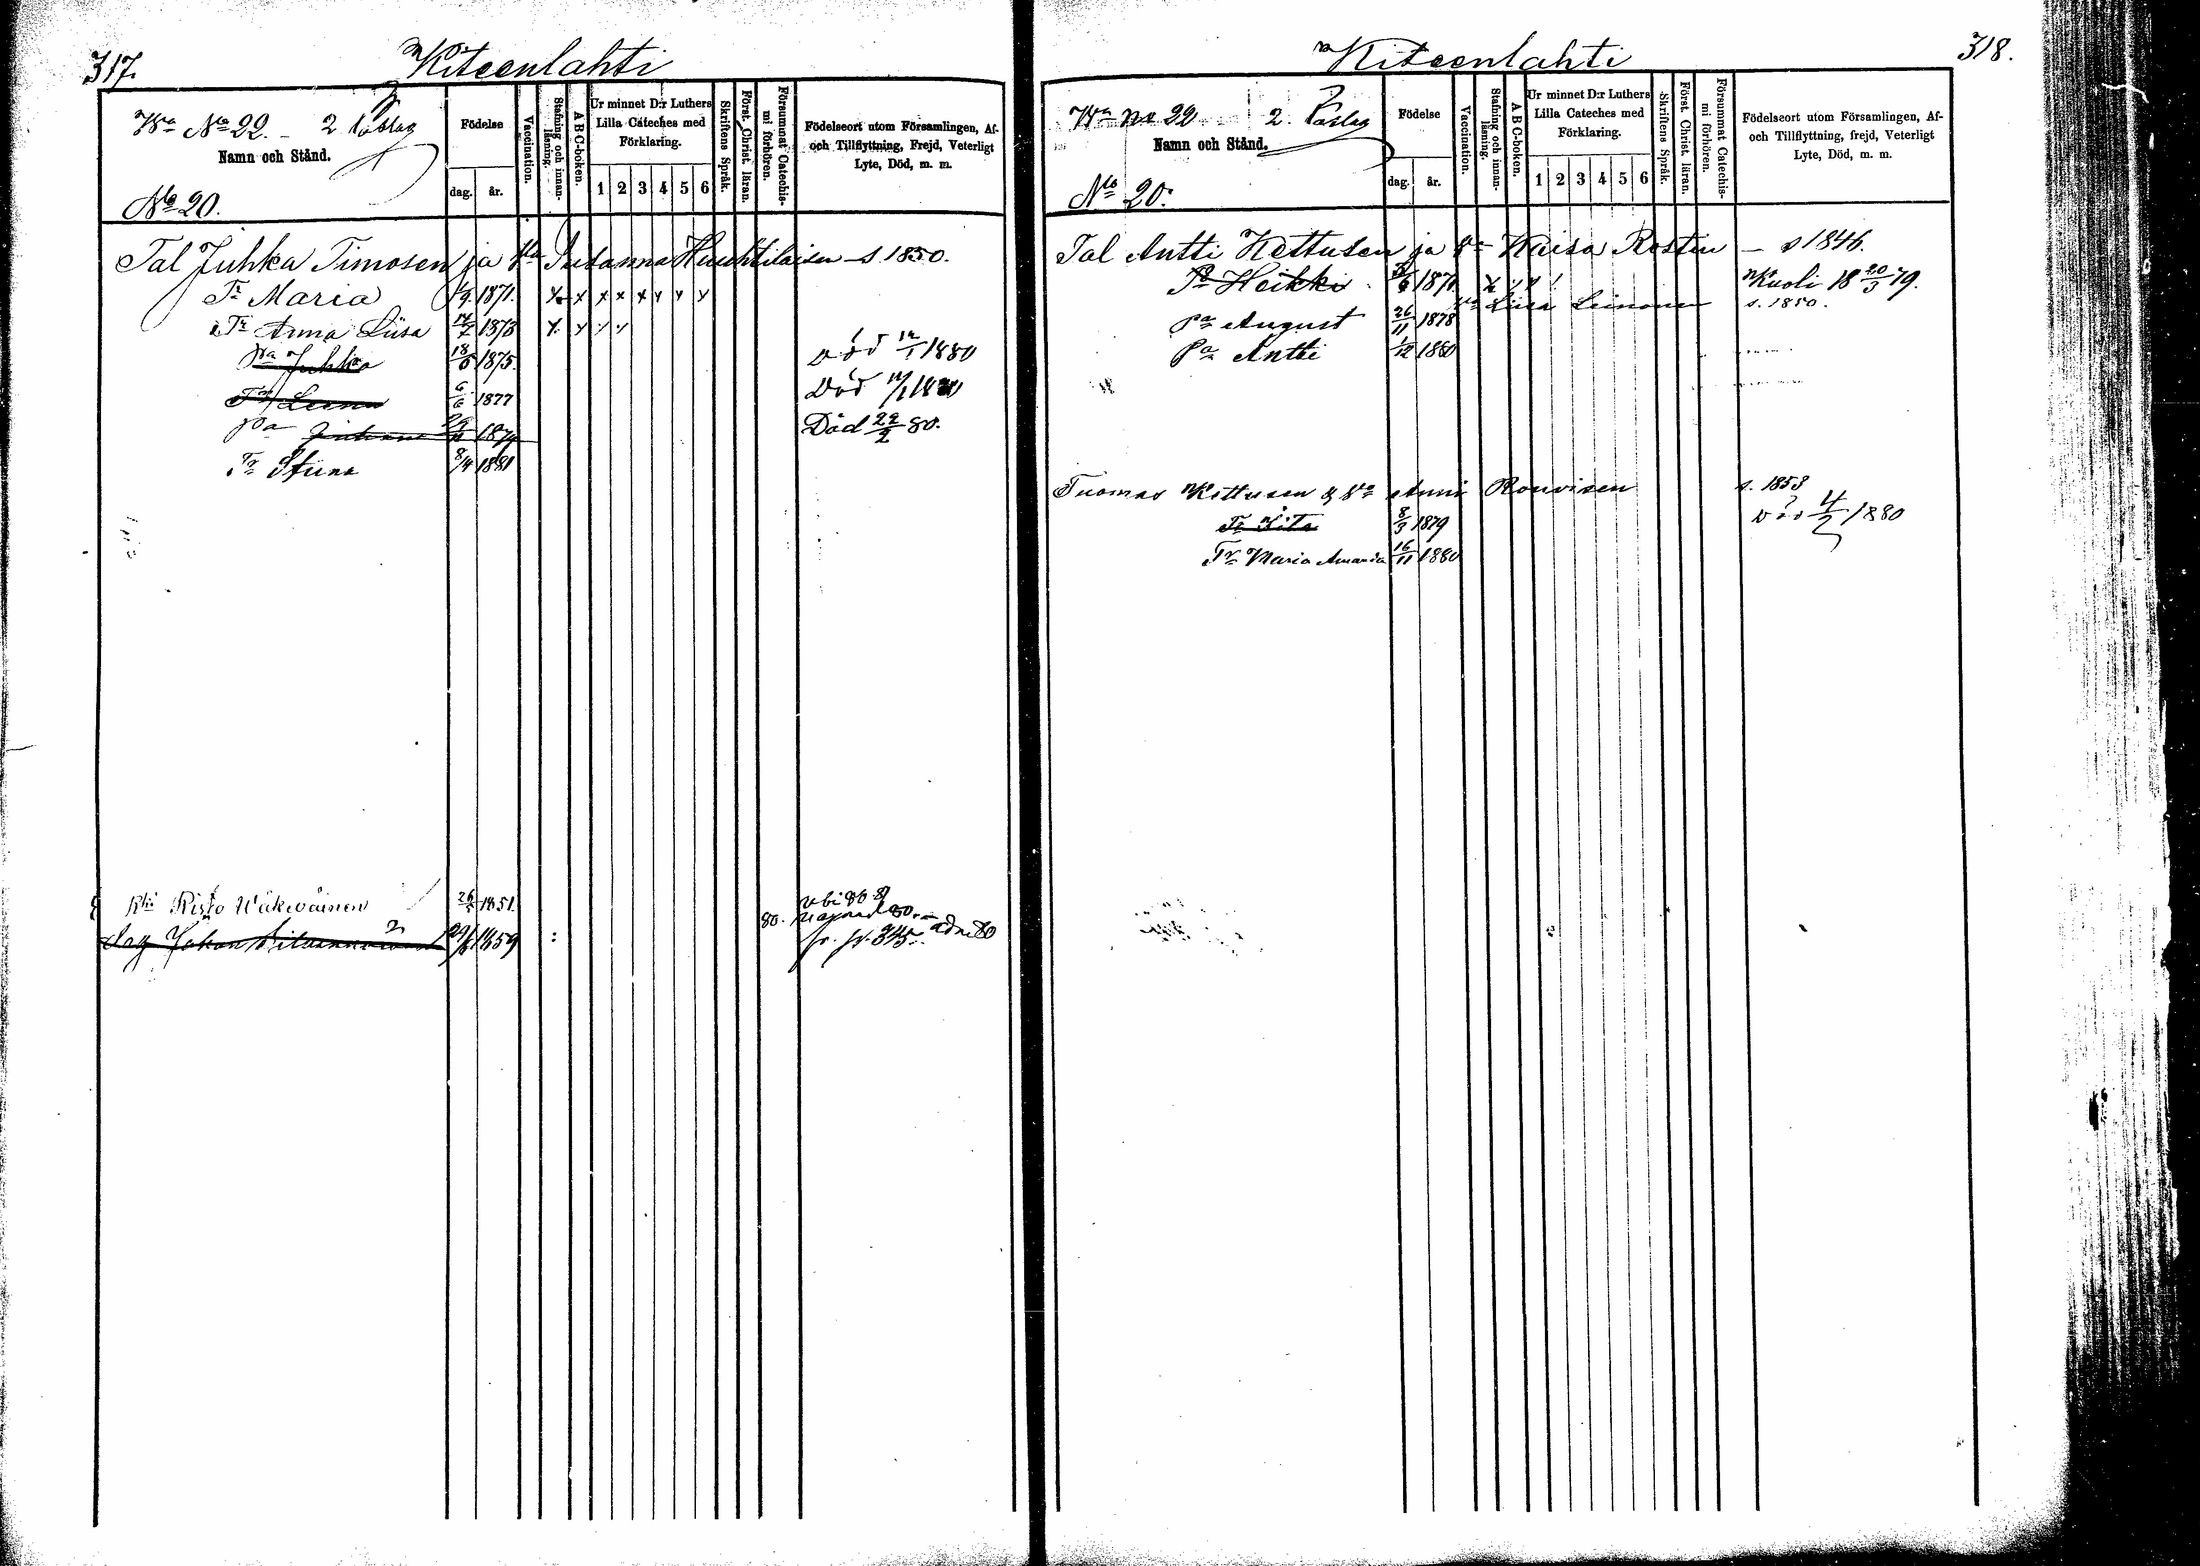 317.
Kiteenlahti
Wa No 22. – 2 Påslag
Namn och Stånd.
No 20.
Födelse
dag. år.
Vaccination.
Stafning och innan-läsning.
A B C-boken.
Ur minnet D:r Luthers
Lilla Cateches med
Förklaring.
1 2 3 4 5 6
Skriftens Språk.
Först. Christ. läran.
Försummat Catechis-mi förhören.
Födelseort utom Församlingen, Af-
och Tillflyttning, Frejd, Veterligt
Lyte, Död, m. m.
Tal Juhka Timosen ja Susanna – s. 1850.
Tr Maria 1/9 1871. x x x x x x x x
Tr Anna Liisa 1873 x x x x
Pa Juhko 18/5 1875. Död 1880
Tr Leena 6/6 1877 Död
Pa 1879 Död 22/2 80.
Tr Stiina 8/4 1881
Rki Risto Wäkewäinen 26 1851. 80.
Drg Johan 1859 : 345.
318.
Kiteenlahti
Wa No 22 2. Påslag
Namn och Stånd.
No 20.
Födelse
dag. år.
Vaccination.
Stafning och innan-läsning.
A B C-boken.
Ur minnet D:r Luthers
Lilla Cateches med
Förklaring.
1 2 3 4 5 6
Skriftens Språk.
Först. Christ. läran.
Försummat Catechis-mi förhören.
Födelseort utom Församlingen, Af-
och Tillflyttning, frejd, Veterligt
Lyte, Död, m. m.
Tal Antti Kettusen ja Va Kaisa Rostin – s 1846.
Pa Heikki 1871 Kuoli 18 20/3 79.
Liisa Leinonen s. 1850.
Pa August 26/11 1878
Pa Antti 1/12 1880
Tuomas Kettusen & Va Anni s. 1853
Tr Iita 8/3 1879 Död 4/2 1880
Tr Maria Amanda 16/11 1880